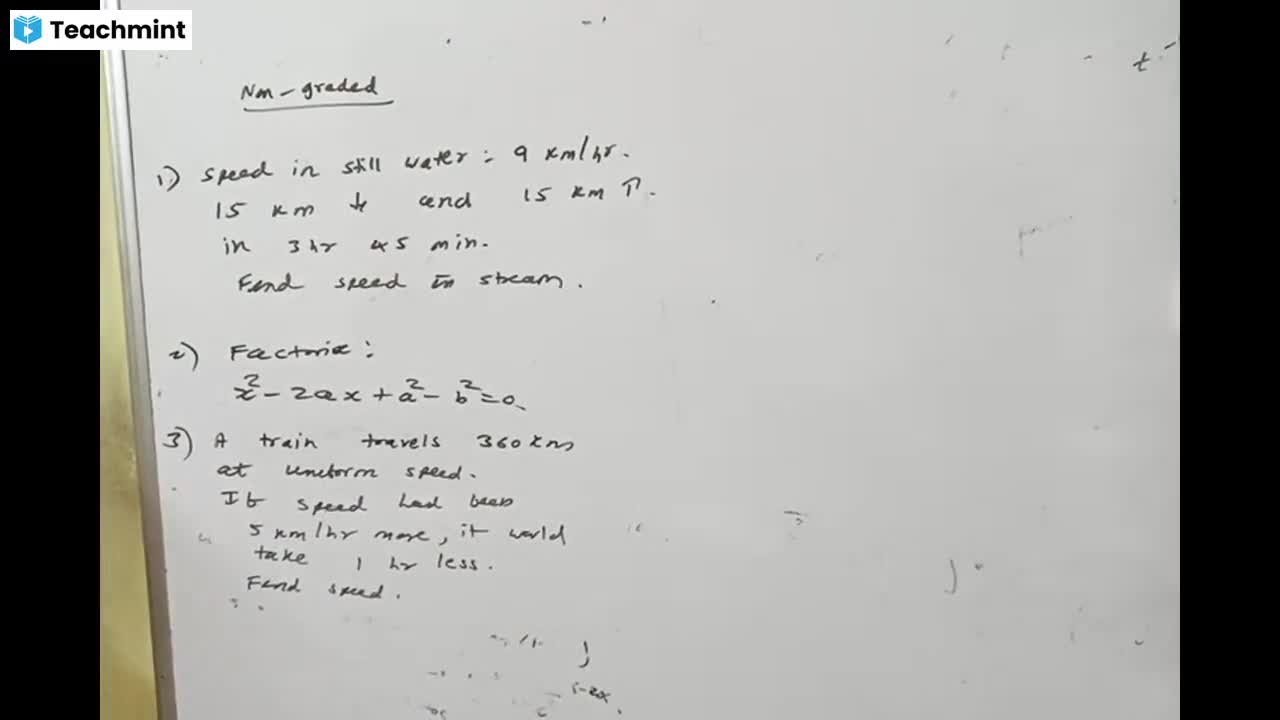 Teachmint
Non-graded
1) Speed in still water = 9 km/hr.
15 km ↓ and 15 km ↑.
in 3 hr 45 min.
Find speed in stream.
2) Factorize:
x² - 2ax + a² - b² = 0.
3) A train travels 360 kms
at uniform speed.
If speed had been
5 km/hr more, it would
take 1 hr less.
Find speed.